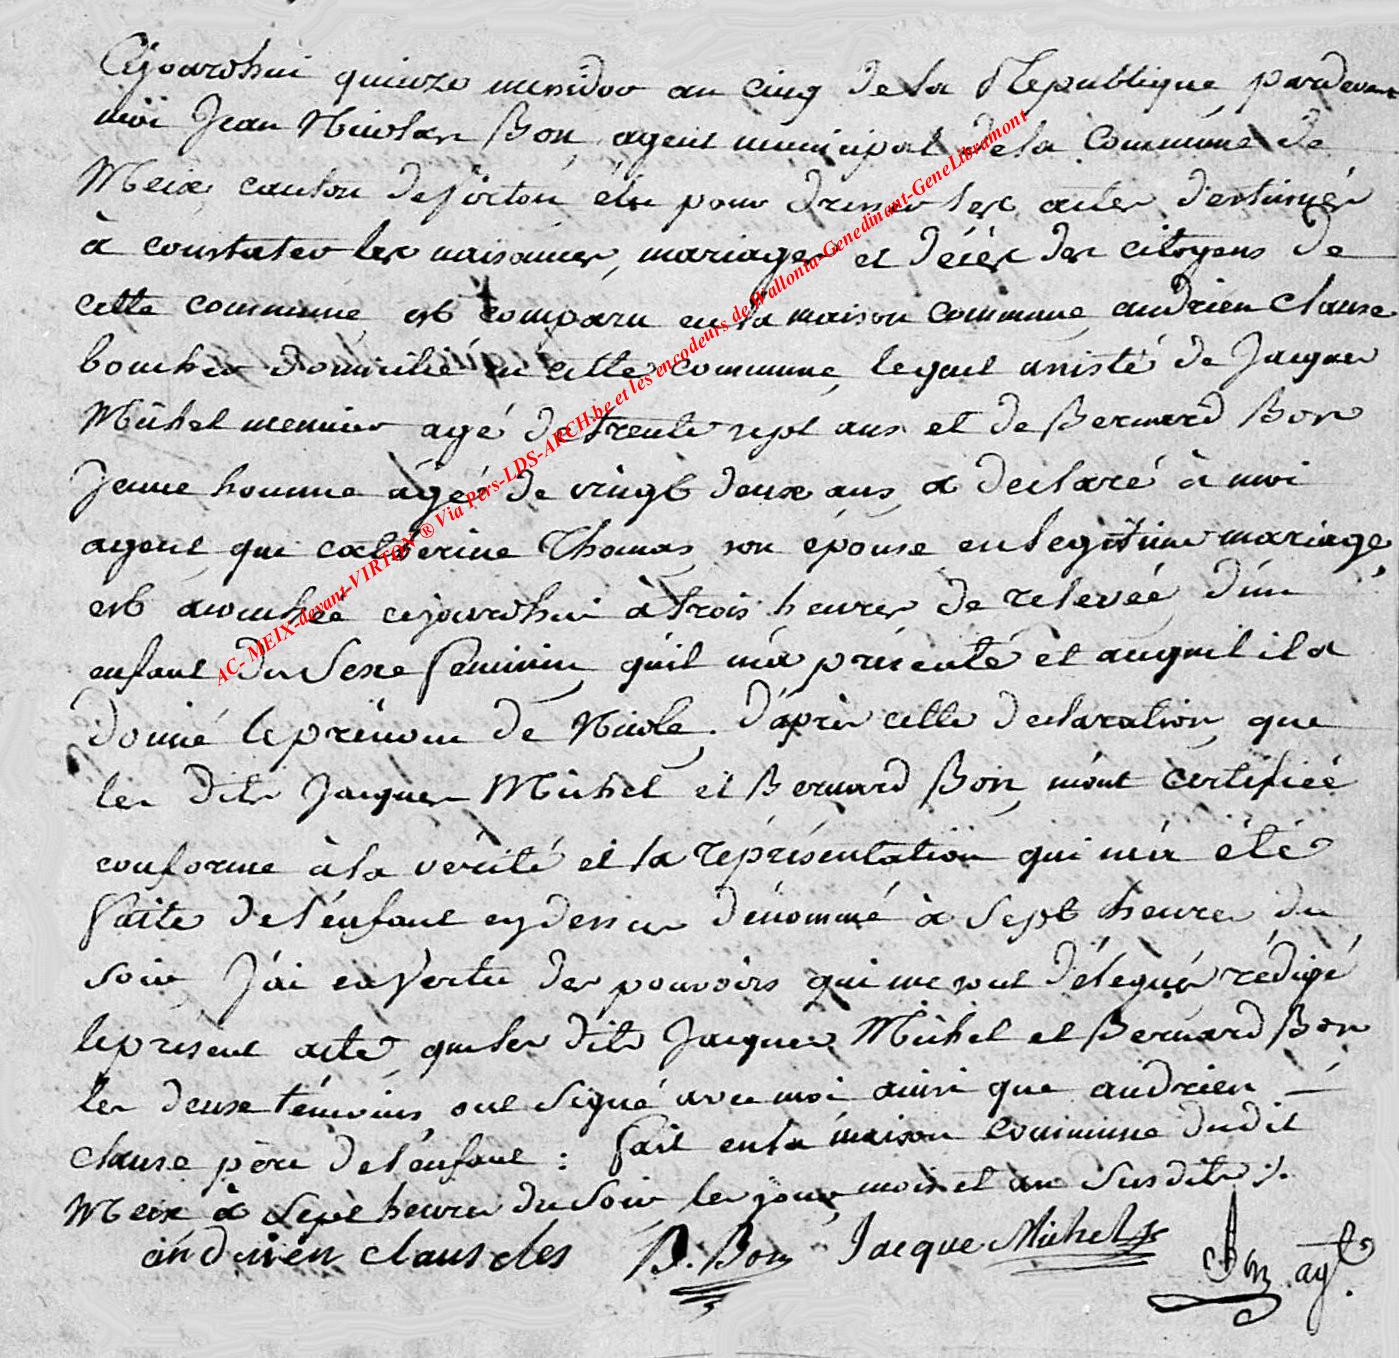 Cejourdhui quinze messidor an cinq de la Republique pardevant
moi Jean Nicolas Bon agent municipal de la Commune de
Meix canton de virton élu pour dresser les actes destinés
à constater les naisances, mariages et décés des citoyens de
cette commune est comparu en la maison commune andrien Clause
boucher domicilié en cette commune, lequel assisté de Jacques
Michel menuier agé de trente sept ans et de Bernard Bon
Jeune homme âgé de vingt deux ans, a declaré à moi
agent que catherine Thomas son épouse en legitime mariage
est accouchée cejourdhui à trois heures de relevée d'un
enfant du Sexe feminin qu'il m'a présenté et auquel il a
donné le prénom de Nicole. d'après cette declaration que
les dits Jacques Michel et Bernard Bon m'ont certifiéé
conforme à la vérité et la représentation qui m'a été
faite de l'enfant cy dessus dénommé à Sept heures du
soir J'ai en Vertu des pouvoirs qui me sont délegués rédigé
le present acte que les dits Jacques Michel et Bernard Bon
les deux témoins ont Signé avec moi ainsi que andrien
clause père de l'enfant : fait en la maison commune dudit
Meix à Sept heures du Soir les jour, mois et an Susdits ./.
andrien claus des B. Bon Jacque Michel Bon agt.
AC- MEIX-devant-VIRTON ® Via Pers-LDS-ARCH.be et les encodeurs de Wallonia-Genedinant-GeneLibramont